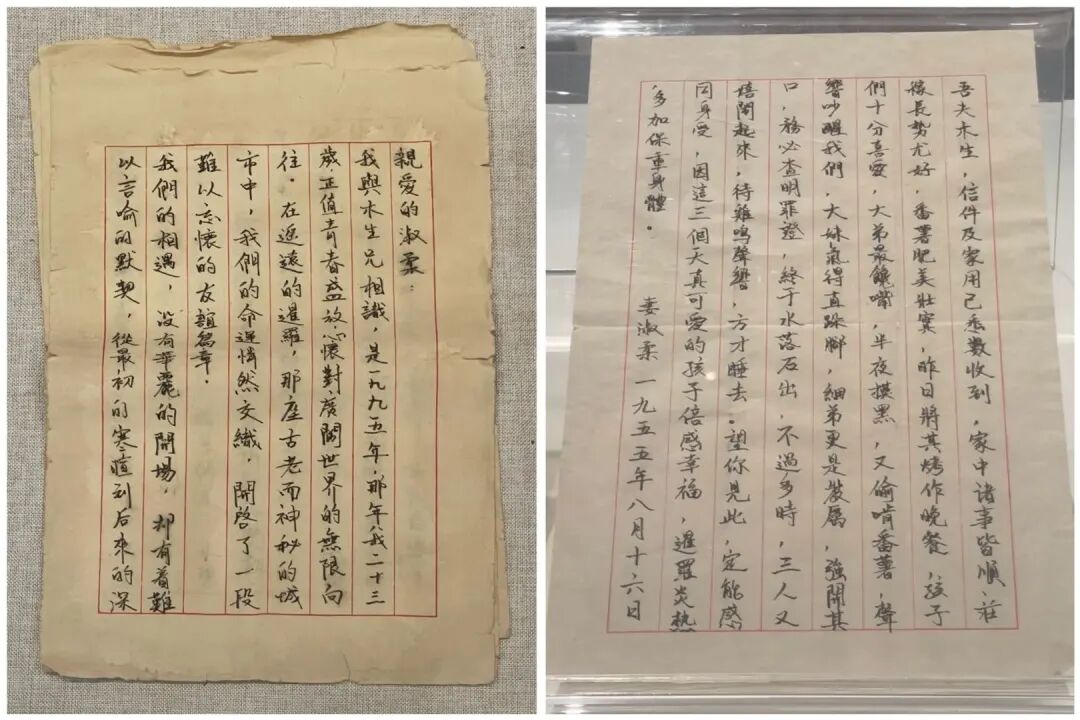 親愛的淑柔：
我與木生兄相識，是一九九五年，那年我二十三
歲，正值青春盛放，心懷對廣闊世界的無限向
往。在遙遠的暹羅，那座古老而神秘的城
市中，我們的命運悄然交織，開啓了一段
難以忘懷的友誼篇章。
我們的相遇，沒有華麗的開場，却有着難
以言喻的默契，從最初的寒暄到后來的深
吾夫木生，信件及家用已悉數收到，家中諸事皆順，莊
稼長勢尤好，番薯肥美壯實，昨日將其烤作晚餐，孩子
們十分喜愛，大弟最饞嘴，半夜摸黑，又偷啃番薯，聲
響吵醒我們，大妹氣得直跺脚，細弟更是裝厲，強開其
口，務必查明罪證，終于水落石出，不過多時，三人又
嬉鬧起來，待雞鳴聲響，方才睡去。望你見此，定能感
同身受，因這三個天真可愛的孩子倍感幸福，暹羅炎熱
，多加保重身體。
妻淑柔 一九五五年八月十六日